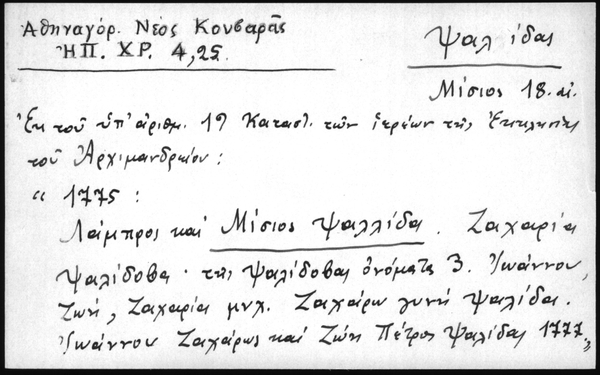 Ἀθηναγόρ. Νέος Κουβαρᾶς
ἨΠ. ΧΡ. 4, 25.
Ψαλίδας
Μίσιος 18. αἰ.
Ἐκ τοῦ ὑπ' ἀριθμ. 19 Καταστ. τῶν ἱερέων τῆς Ἐκκλησίας
τοῦ Ἀρχιμανδρείου :
“ 1775 :
Λάμπρος καὶ Μίσιος Ψαλλίδα. Ζαχαρία
Ψαλίδοβα · τῆς Ψαλίδοβας ὀνόματα 3. Ἰωάννου,
Ζωή, Ζαχαρία μνχ. Ζαχάρω γυνή Ψαλίδα.
Ἰωάννου Ζαχάρως καὶ Ζώη Πέτρος Ψαλίδας 1777.„